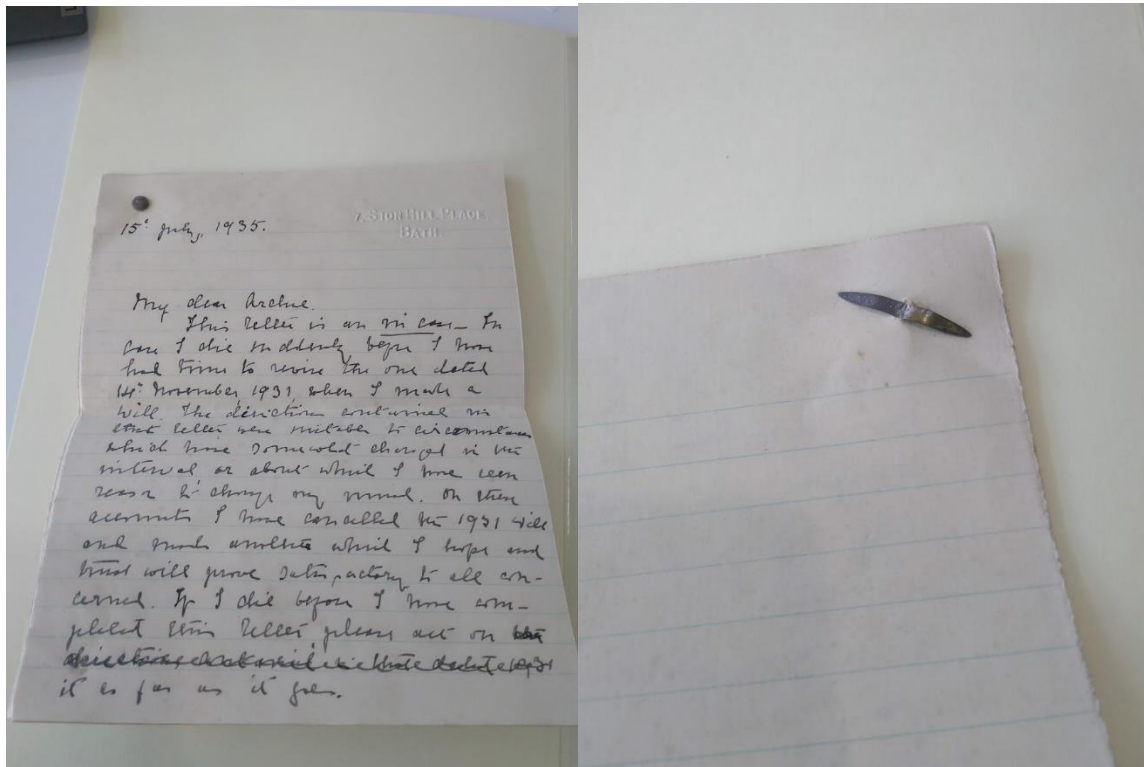 15t July, 1935.
7, SION HILL PLACE,
BATH.
My dear Archie.
This letter is an in case — In
case I die suddenly before I have
had time to revise the one dated
14t November, 1931, when I made a
will. The directions contained in
that letter were suitable to circumstances
which have somewhat changed in the
interval or about which I have seen
reason to change my mind. On these
accounts I have cancelled the 1931 will
and made another which I hope and
trust will prove satisfactory to all con-
cerned. If I die before I have com-
pleted this letter, please act on
it as far as it goes.